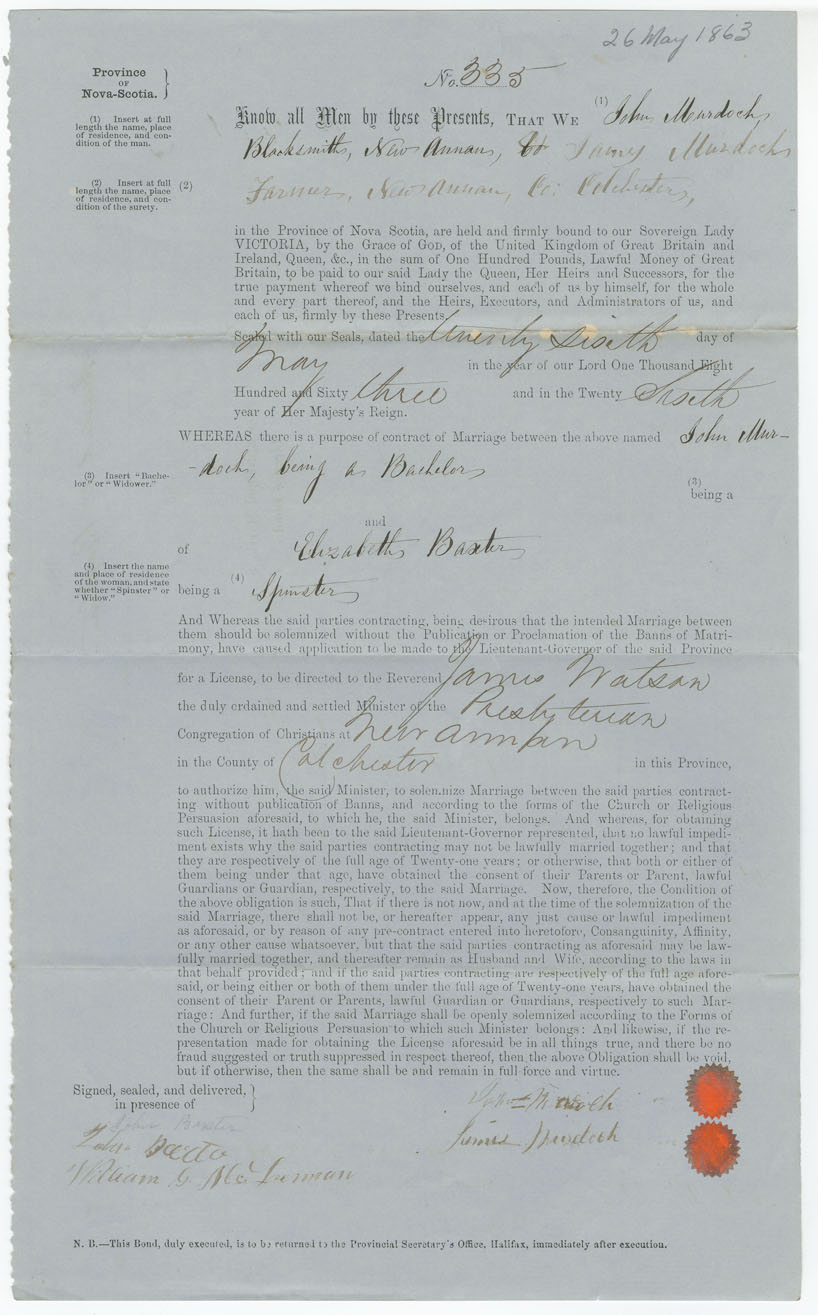 26 May 1863
Province
OF
Nova-Scotia.
No. 335
(1) Insert at full
length the name, place
of residence, and con-
dition of the man.
Know all Men by these Presents, THAT WE (1) John Murdoch,
Blacksmith, New Annan, & James Murdoch
(2) Insert at full
length the name, place
of residence, and con-
dition of the surety.
(2) Farmer, New Annan, Co: Colchester,
in the Province of Nova Scotia, are held and firmly bound to our Sovereign Lady
VICTORIA, by the Grace of GOD, of the United Kingdom of Great Britain and
Ireland, Queen, &c., in the sum of One Hundred Pounds, Lawful Money of Great
Britain, to be paid to our said Lady the Queen, Her Heirs and Successors, for the
true payment whereof we bind ourselves, and each of us by himself, for the whole
and every part thereof, and the Heirs, Executors, and Administrators of us, and
each of us, firmly by these Presents.
Sealed with our Seals, dated the twenty sixth day of
May in the year of our Lord One Thousand Eight
Hundred and Sixty three and in the Twenty Sixth
year of Her Majesty's Reign.
WHEREAS there is a purpose of contract of Marriage between the above named John Mur-
-doch, being a Bachelor
(3) Insert "Bache-
lor" or "Widower."
(3)
being a
and
of Elizabeth Baxter
(4) Insert the name
and place of residence
of the woman, and state
whether "Spinster" or
"Widow."
being a (4) Spinster
And Whereas the said parties contracting, being desirous that the intended Marriage between
them should be solemnized without the Publication or Proclamation of the Banns of Matri-
mony, have caused application to be made to the Lieutenant-Governor of the said Province
for a License, to be directed to the Reverend James Watson
the duly ordained and settled Minister of the Presbyterian
Congregation of Christians at New Annan
in the County of Colchester in this Province,
to authorize him, the said Minister, to solemnize Marriage between the said parties contract-
ing without publication of Banns, and according to the forms of the Church or Religious
Persuasion aforesaid, to which he, the said Minister, belongs. And whereas, for obtaining
such License, it hath been to the said Lieutenant-Governor represented, that no lawful impedi-
ment exists why the said parties contracting may not be lawfully married together; and that
they are respectively of the full age of Twenty-one years; or otherwise, that both or either of
them being under that age, have obtained the consent of their Parents or Parent, lawful
Guardians or Guardian, respectively, to the said Marriage. Now, therefore, the Condition of
the above obligation is such, That if there is not now, and at the time of the solemnization of the
said Marriage, there shall not be, or hereafter appear, any just cause or lawful impediment
as aforesaid, or by reason of any pre-contract entered into heretofore, Consanguinity, Affinity,
or any other cause whatsoever, but that the said parties contracting as aforesaid may be law-
fully married together, and thereafter remain as Husband and Wife, according to the laws in
that behalf provided; and if the said parties contracting are respectively of the full age afore-
said, or being either or both of them under the full age of Twenty-one years, have obtained the
consent of their Parent or Parents, lawful Guardian or Guardians, respectively to such Mar-
riage: And further, if the said Marriage shall be openly solemnized according to the Forms of
the Church or Religious Persuasion to which such Minister belongs: And likewise, if the re-
presentation made for obtaining the License aforesaid be in all things true, and there be no
fraud suggested or truth suppressed in respect thereof, then the above Obligation shall be void,
but if otherwise, then the same shall be and remain in full force and virtue.
Signed, sealed, and delivered,
in presence of
John Murdoch
John Baxter
James Murdoch
William G. Mc
N. B.—This Bond, duly executed, is to be returned to the Provincial Secretary's Office, Halifax, immediately after execution.